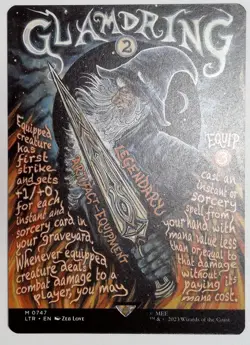 GLAMDRING
2
Equipped
creature
has
first
strike
and gets
+1/+0
for each
instant and
sorcery card in
your graveyard.
Whenever equipped
creature deals
combat damage to a
player, you may
LEGENDARY
ARTIFACT EQUIPMENT
EQUIP
3
cast an
instant or
sorcery
spell from
your hand with
mana value less
than or equal to
that damage
without
paying its
mana cost.
M 0747
LTR • EN ZEB LOVE
© MEE
™ & © 2023 Wizards of the Coast